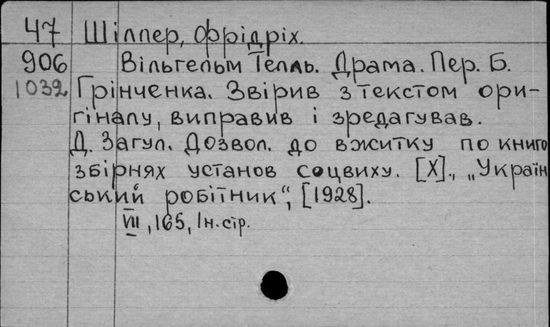 47 Шіллер, Фрідріх.
906 Вільгельм Телль. Драма. Пер. Б.
1032 Грінченка. Звірив з текстом ори-
гіналу, виправив і зредагував.
Д. Загул. Дозвол. до вжитку по книго
збірнях установ соцвиху. [Х]., „Україн
ський робітник“, [1928].
VII, 165, Iн. стр.